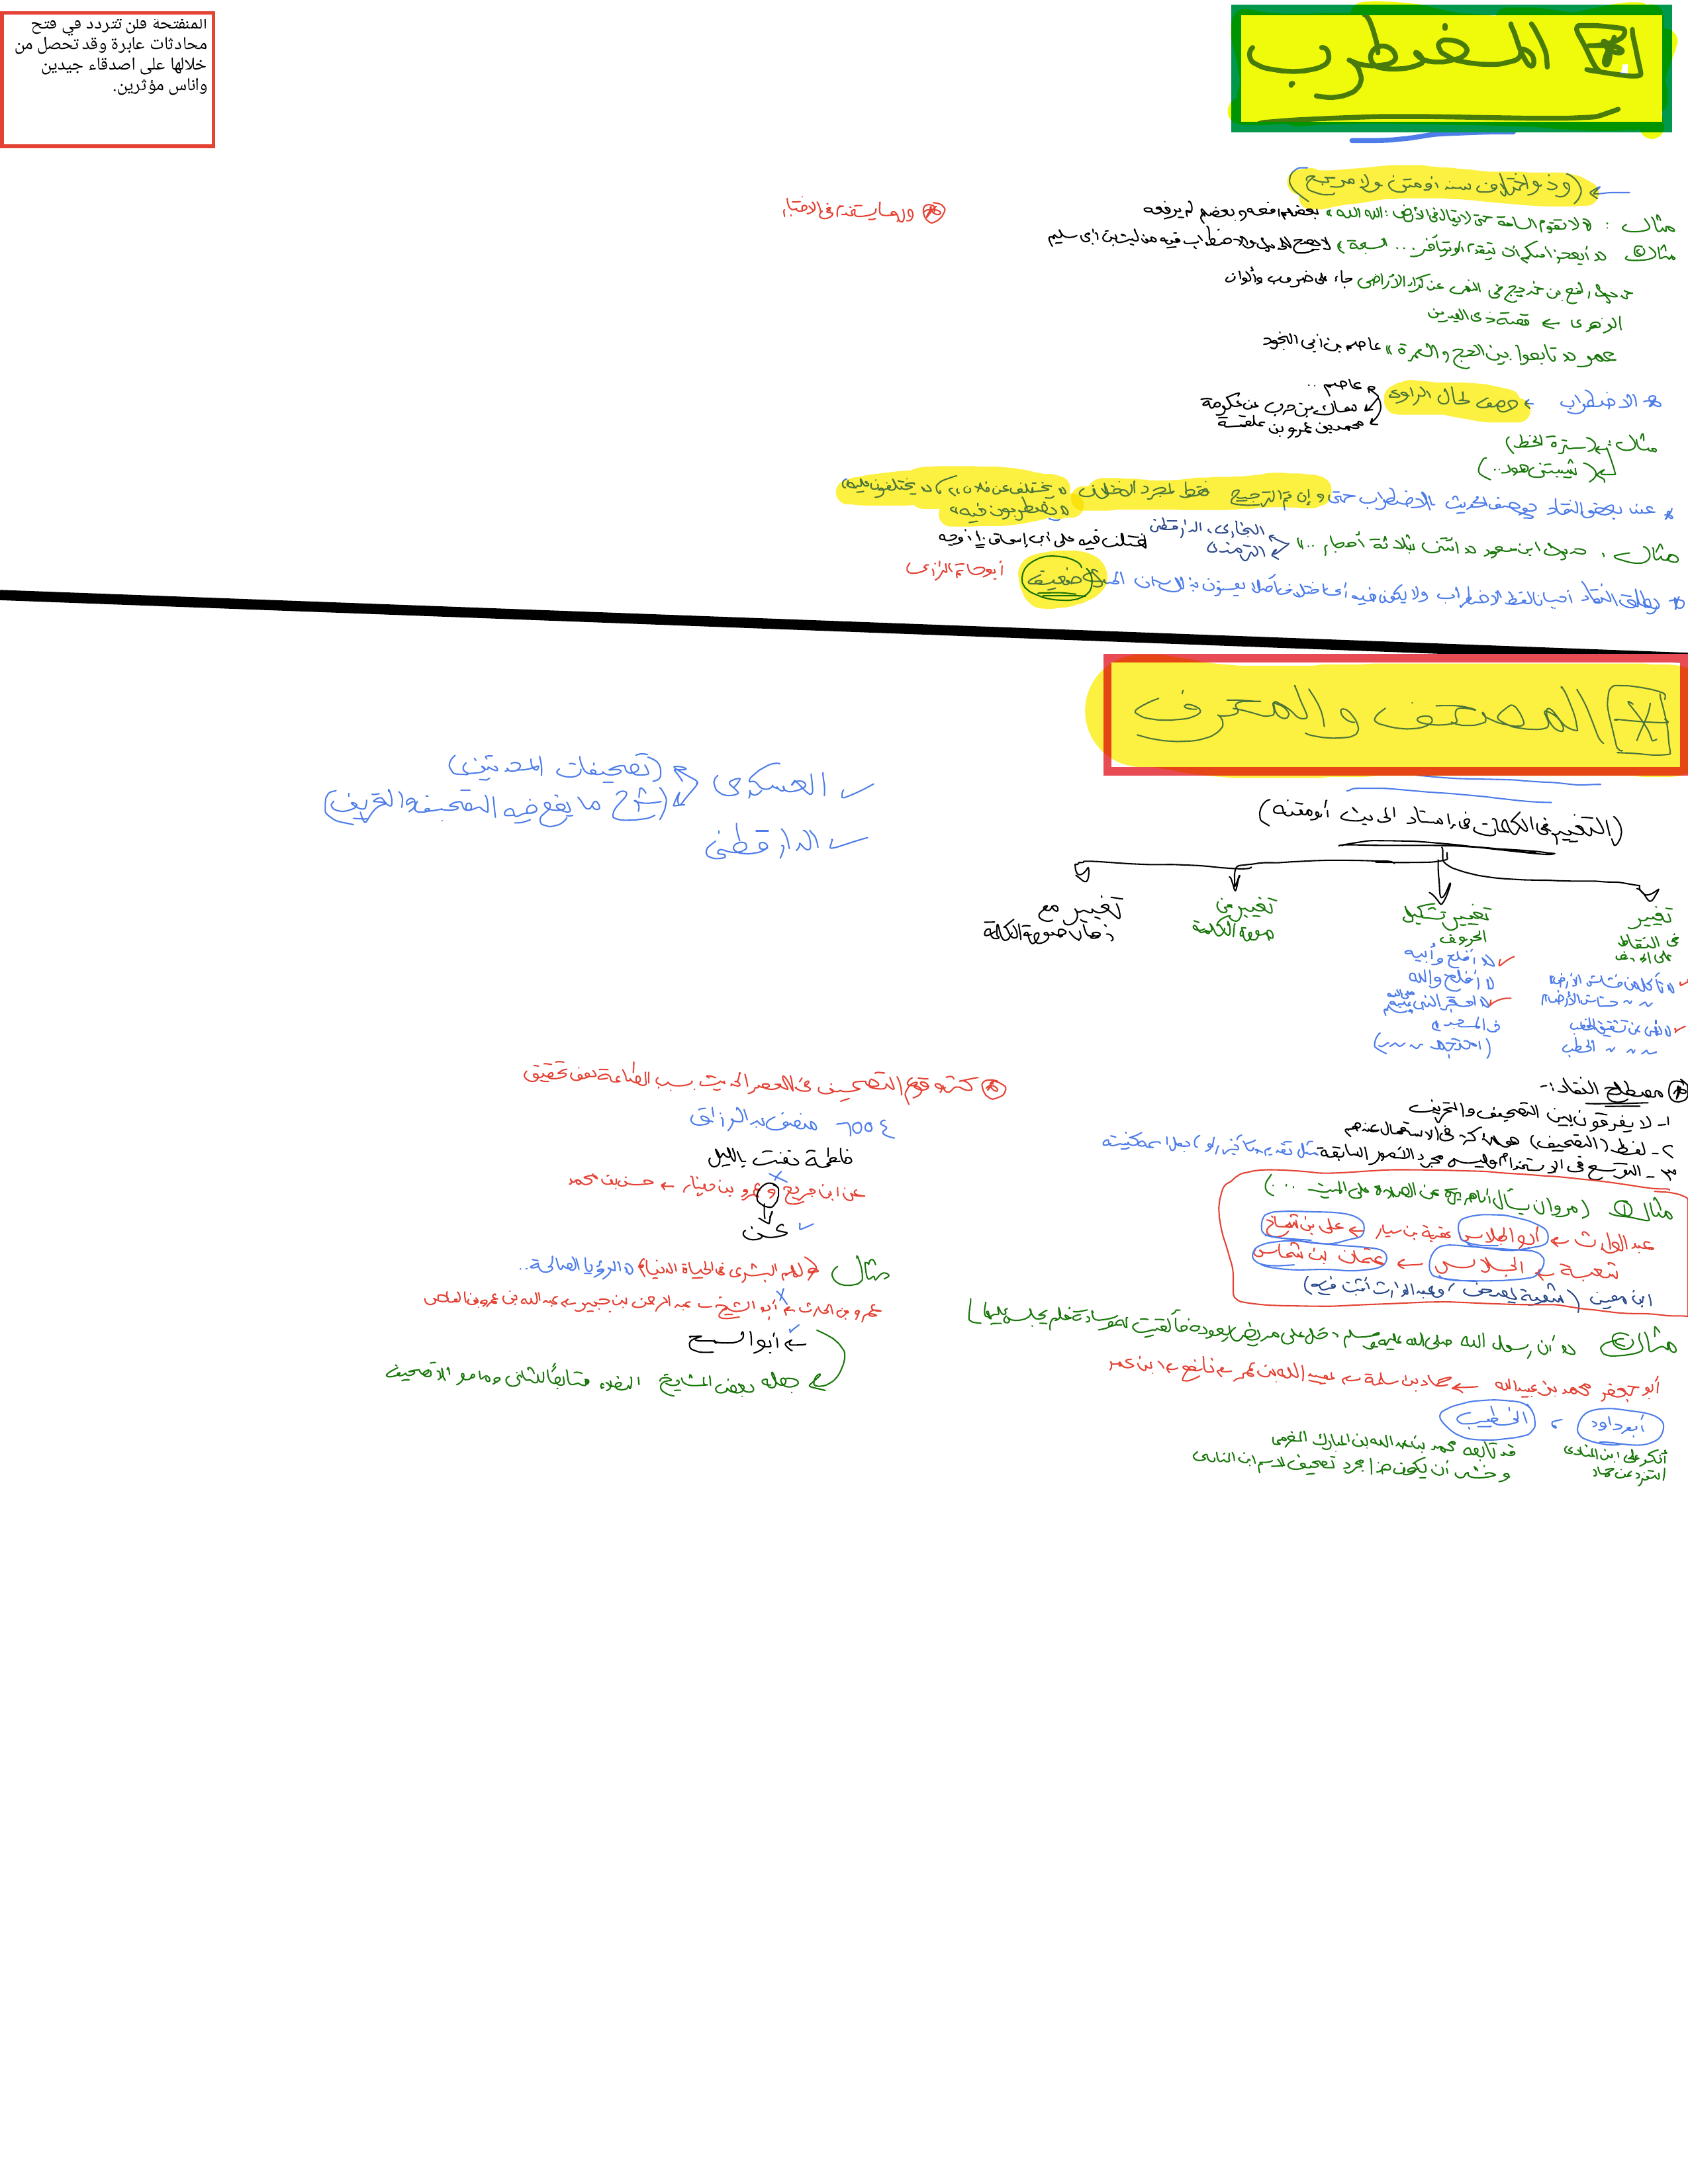 المضطرب
المنفتحة فلن تتردد في فتح
محادثات عابرة وقد تحصل من
خلالها على اصدقاء جيدين
واناس مؤثرين.
(وذو اختلاف سند او متن ولا مرجح)
مثال: « لا تقوم الساعة حتى لا يقال في الأرض: الله الله » بعضهم رفعه وبعضهم لم يرفعه
مثال ② « أيعجز احدكم أن يتقدم أو يتأخر ... السبحة » لا يصح الحديث والاضطراب فيه من ليث بن أبي سليم
حديث رافع بن خديج في النهي عن كراء الأراضي جاء على ضروب وألوان
الزهري ← قصة ذي اليدين
عمر « تابعوا بين الحج والعمرة » عاصم بن أبي النجود
* الاضطراب ← وصف لحال الراوي
عاصم ..
سماك بن حرب عن عكرمة
محمد بن عمرو بن علقمة
مثال: (سترة الخط)
(شيبتني هود..)
* عند بعض النقاد يوصف الحديث بالاضطراب حتى وإن تم الترجيح فقط لمجرد الخلاف « يختلف عن فلان » ، « يختلفون فيه »
« يضطربون فيه »
مثال: حديث ابن مسعود « ائتني بثلاثة أحجار .. » البخاري ، الدارقطني
الترمذي
اختلف فيه على أبي إسحاق ١٠ أوجه
* يطلق النقاد أحيانا لفظ الاضطراب ولا يكون فيه أي اختلاف أصلا يعنون بذلك أن الحديث ضعيف أبو حاتم الرازي
المصحف والمحرف
✓ العسكري (تصحيفات المحدثين)
(شرح ما يقع فيه التصحيف والتحريف)
✓ الدارقطني
(التغيير في الكلمات في إسناد الحديث أو متنه)
تغيير
في النقاط
على الحروف
تغيير تشكيل
الحروف
تغيير في
صورة الكلمة
تغيير مع
ذهاب صورة الكلمة
« تأكل من خشاش الأرض
~ ~ حشاش الأرض
« نهى عن تشقيق الخطب
~ ~ ~ الحطب
« أفلح وأبيه
« أفلح والله
« احتجر النبي صلى الله عليه وسلم
في المسجد »
(احتجم ~ ~ ~)
* مصطلح النقاد:-
١- لا يفرقون بين التصحيف والتحريف
٢- لفظ (التصحيف) هو الأكثر في الاستعمال عندهم
٣- التوسع في الاستخدام وليس مجرد الصور السابقة مثل تقديم وتأخير راو / جعل اسمه كنيته
مثال ① (مروان يسأل أبا هريرة عن الصلاة على الميت ...)
عبد الوارث ← أبو الجلاس عقبة بن سيار ← علي بن شماخ
شعبة ← الجلاس ← عثمان بن شماس
ابن معين (شعبة يصحف، وعبد الوارث أثبت فيه)
مثال ② « أن رسول الله صلى الله عليه وسلم دخل على مريض يعوده فألقيت له وسادة فلم يجلس عليها »
أبو جعفر محمد بن عبيد الله ← حماد بن سلمة ← عبيد الله بن عمر ← نافع ← ابن عمر
أبو داود ، الخطيب
أنكر على ابن المنادي
التفرد عن حماد
قد تابعه محمد بن عبد الله بن المبارك المخرمي
وخشي أن يكون هذا مجرد تصحيف لاسم ابن المنادي
* كثر وقوع التصحيف في العصر الحديث بسبب الطباعة بدون تحقيق
٦٥٥٤ مصنف عبد الرزاق
فاطمة دفنت بالليل
عن ابن جريج و عمرو بن دينار ← حسن بن محمد
عن ✓
مثال ﴿لهم البشرى في الحياة الدنيا﴾ « الرؤيا الصالحة..
عمرو بن الحارث ← أبو الشيخ ← عبد الرحمن بن جبير ← عبد الله بن عمرو بن العاص
← أبو السمح
جعله بعض المشايخ الفضلاء متابعًا للثاني وما هو إلا تصحيف